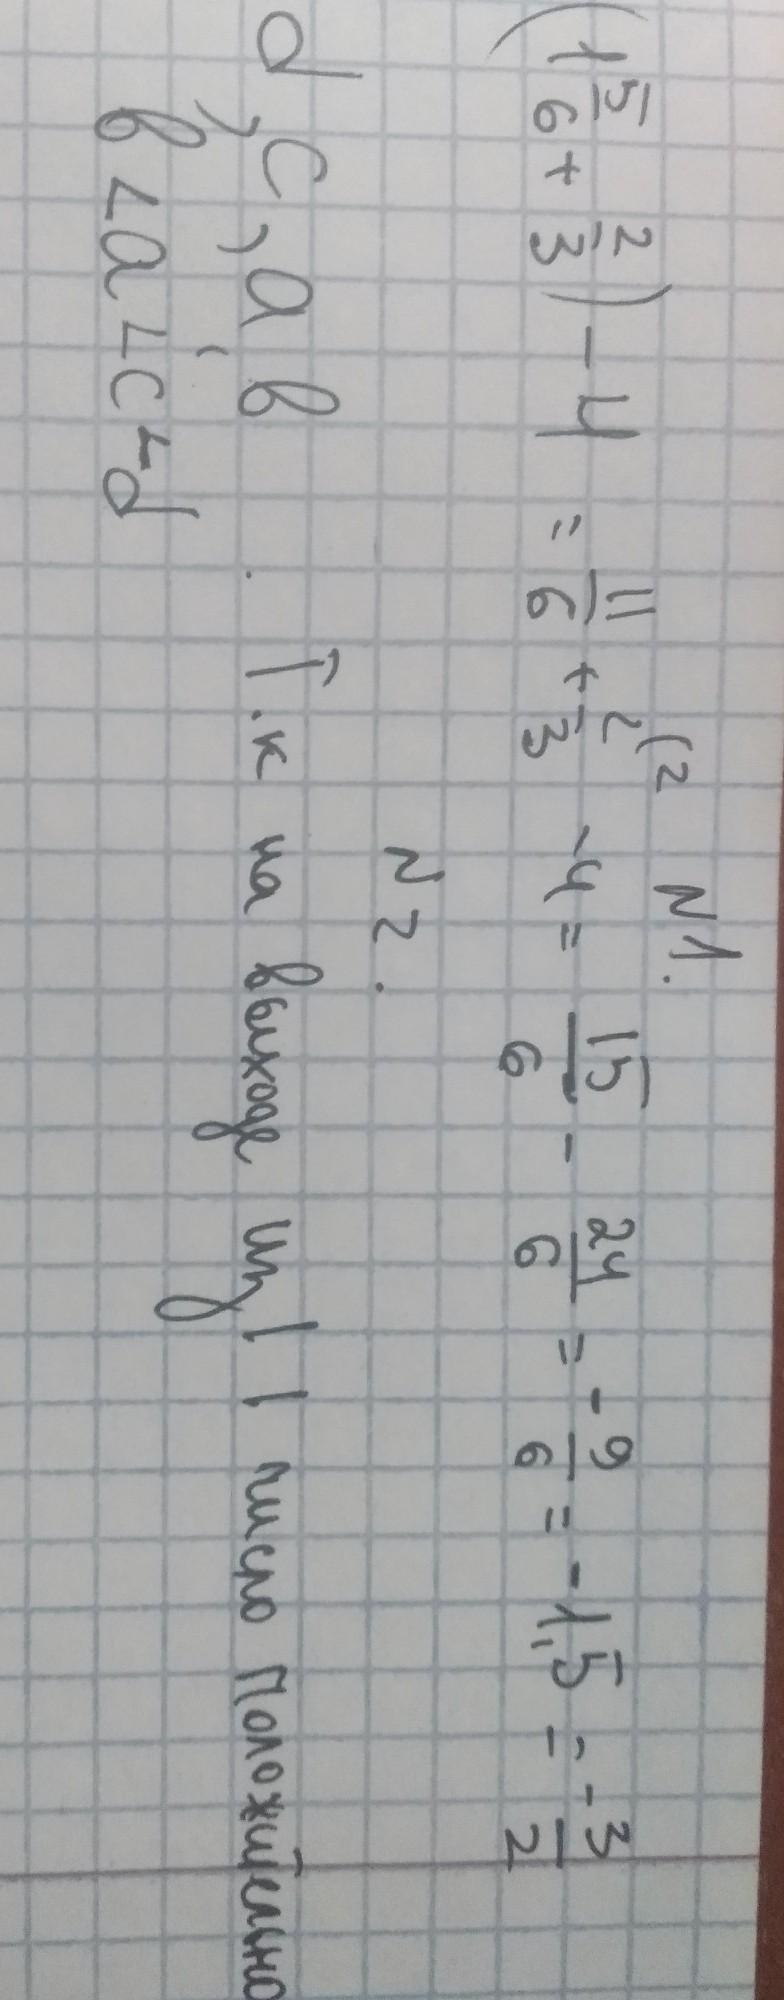 N1.
(1 5/6 + 2/3) - 4 = 11/6 + 2/3 (2 - 4 = 15/6 - 24/6 = - 9/6 = -1,5 = - 3/2
N2.
d, c, a, в. Т.к на выходе из | | число положительно
в < a < c < d